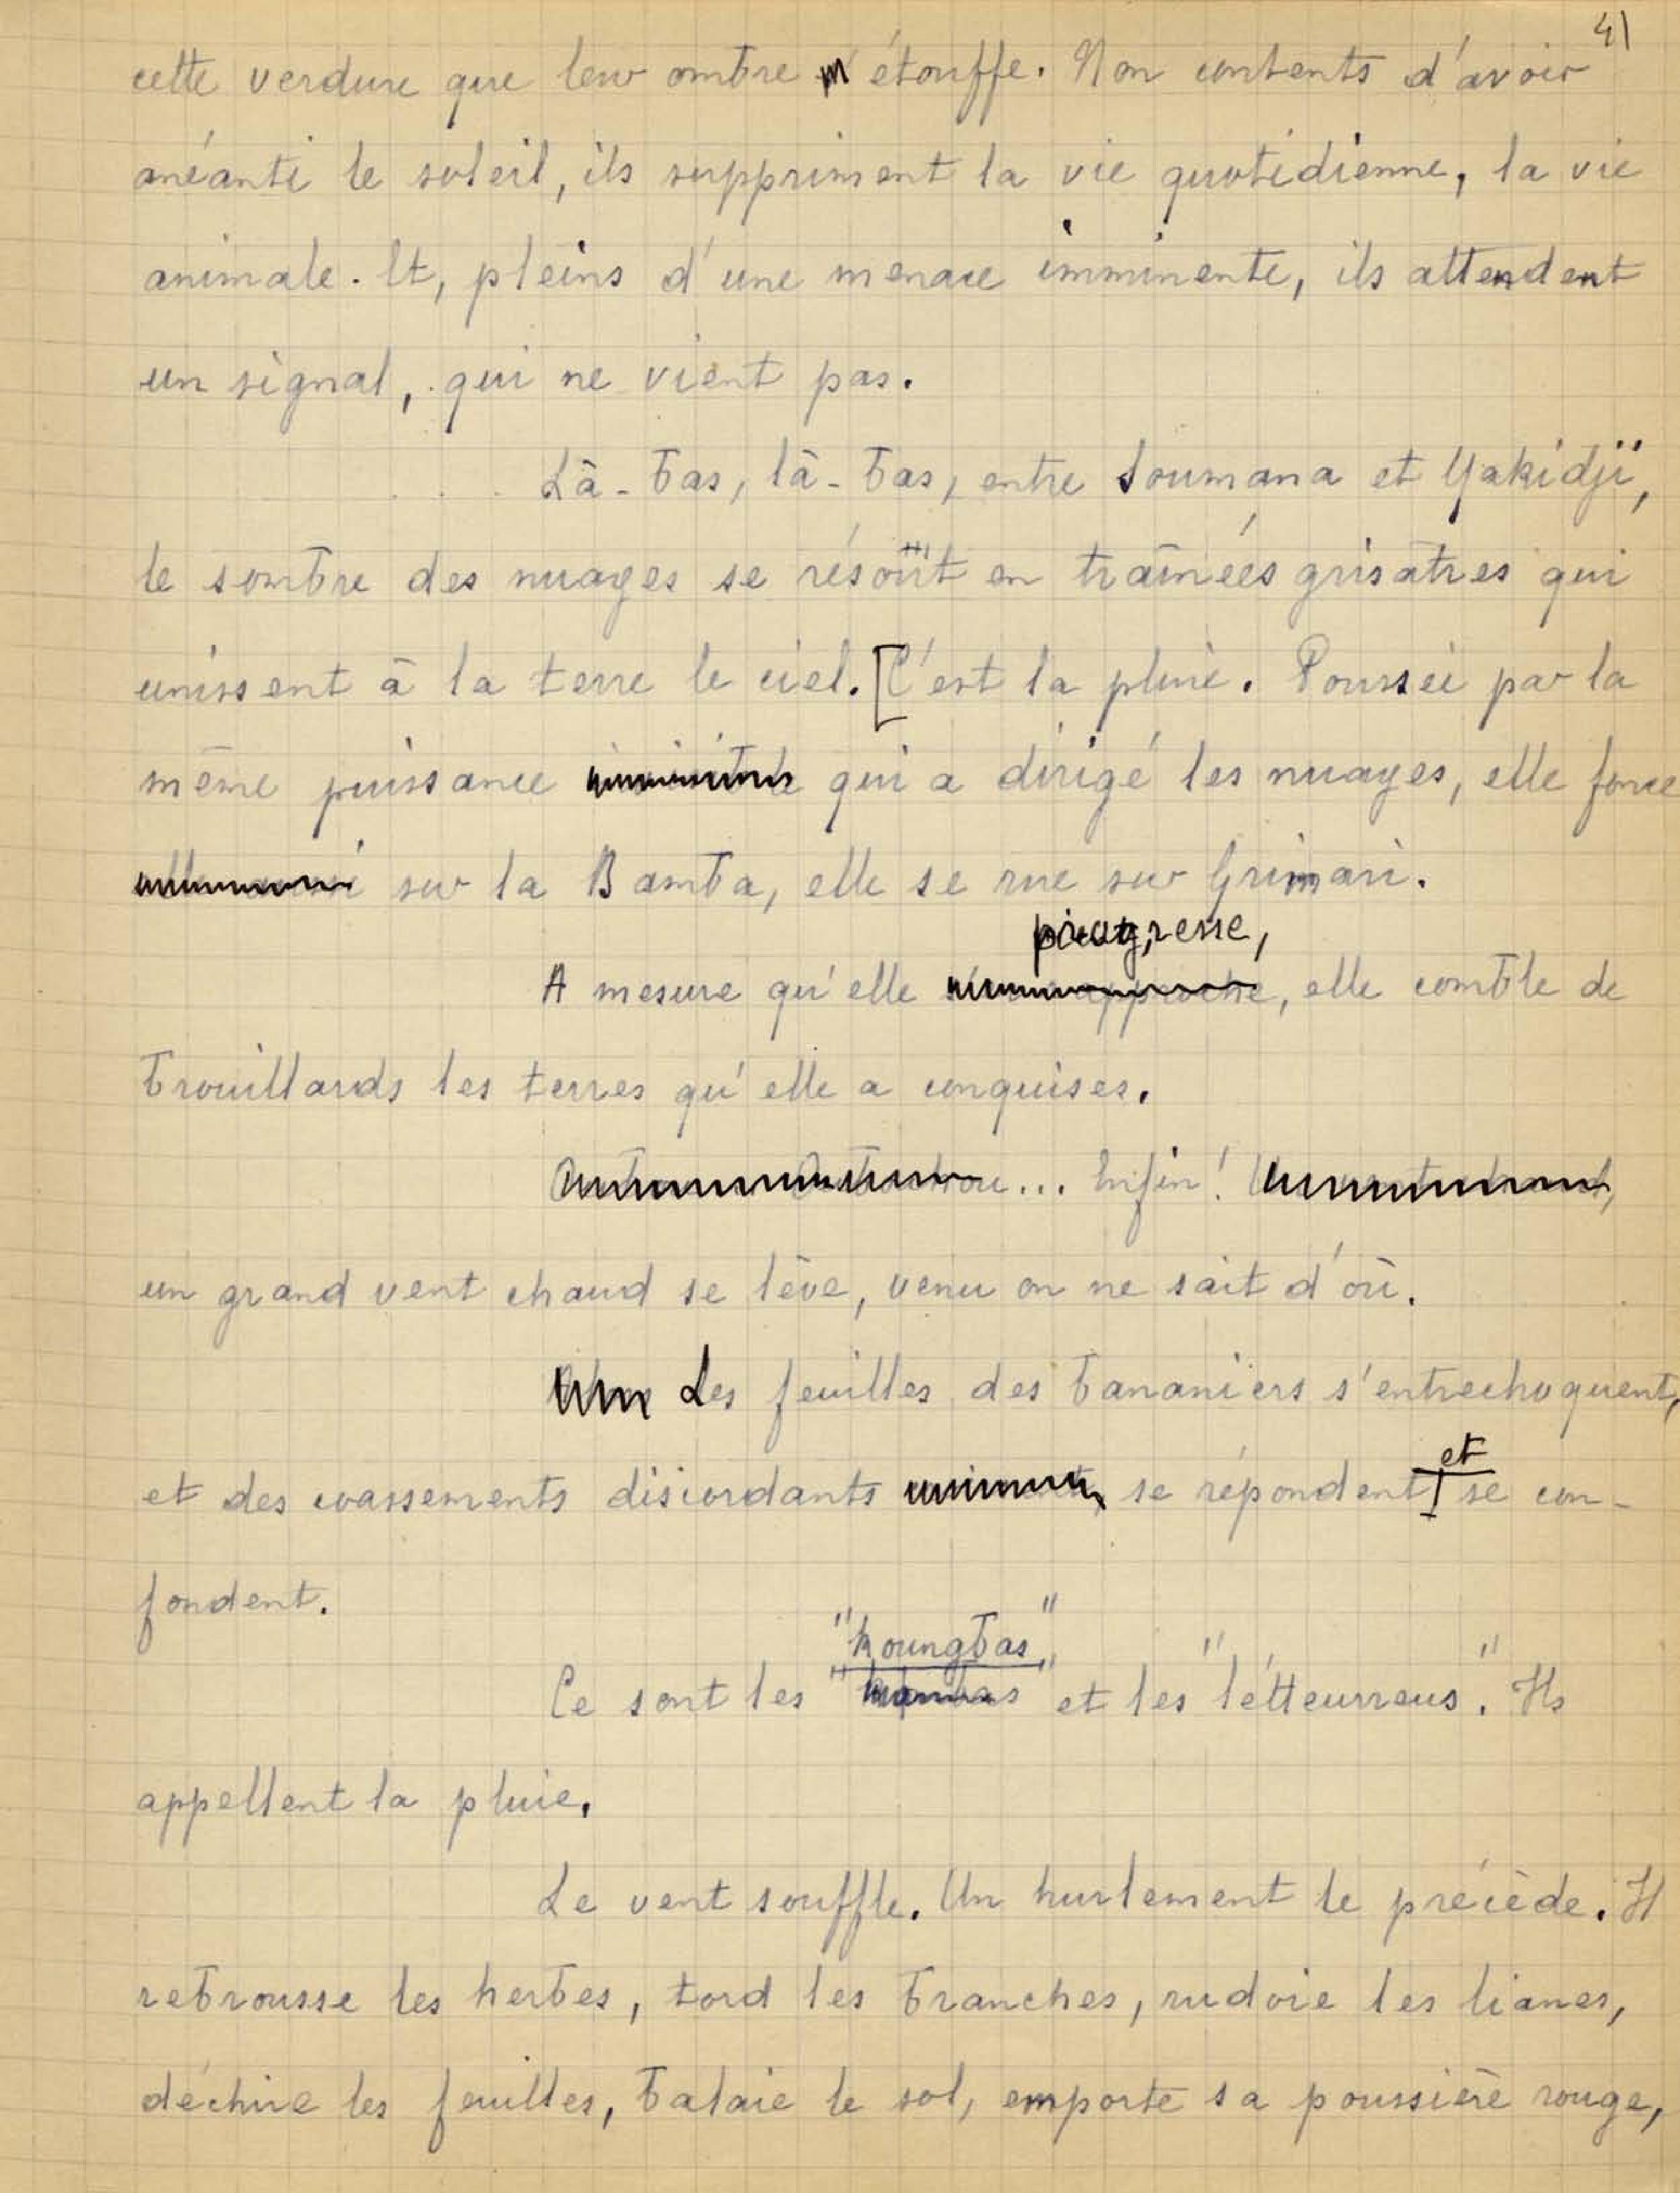 41
cette verdure que leur ombre étouffe. Non contents d'avoir
anéanti le soleil, ils suppriment la vie quotidienne, la vie
animale. Et, pleins d'une menace imminente, ils attendent
un signal, qui ne vient pas.
Là-bas, là-bas, entre Soumana et Yakidji,
le sombre des nuages se résout en traînées grisâtres qui
unissent à la terre le ciel. [C'est la pluie. Poussée par la
même puissance qui a dirigé les nuages, elle fonce
sur la Bamba, elle se rue sur Grimari.
progresse,
A mesure qu'elle approche, elle comble de
brouillards les terres qu'elle a conquises.
... Enfin !
un grand vent chaud se lève, venu on ne sait d'où.
Les feuilles des bananiers s'entrechoquent,
et
et des coassements discordants se répondent se con-
fondent.
"koungbas"
Ce sont les et les "létteurreus". Ils
appellent la pluie.
Le vent souffle. Un hurlement le précède. Il
rebrousse les herbes, tord les branches, rudoie les lianes,
déchire les feuilles, balaie le sol, emporte sa poussière rouge,